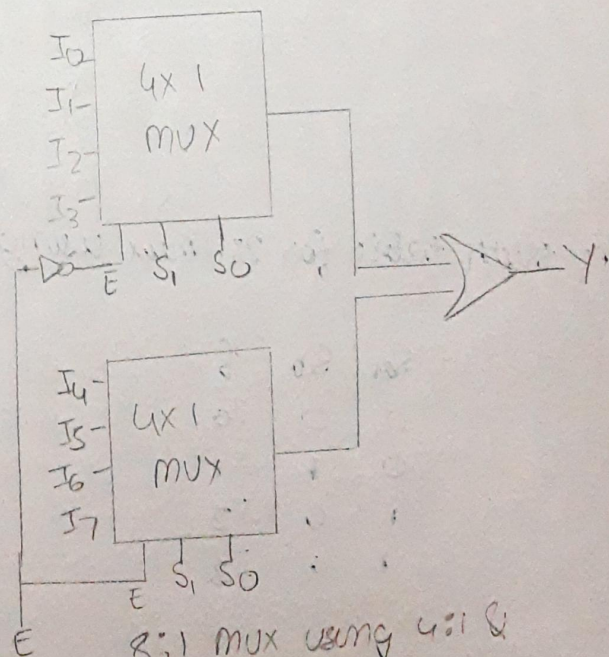 I0
I1
I2
I3
4x1
MUX
E S1 S0
Y
I4
I5
I6
I7
4x1
MUX
E S1 S0
E
8:1 MUX using 4:1 &